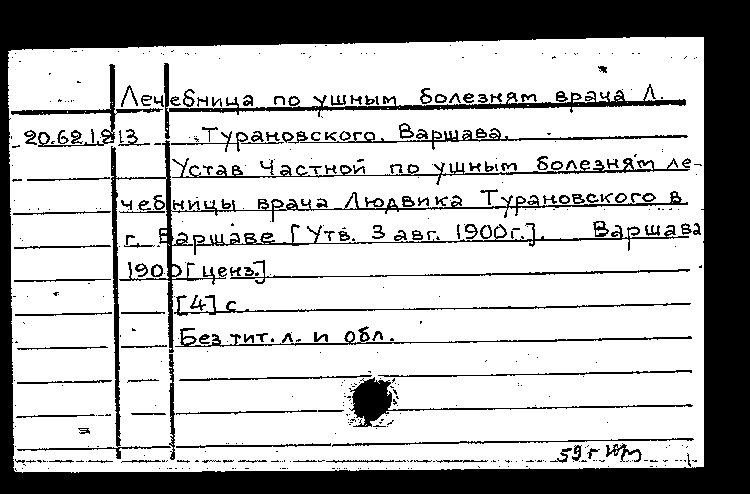 Лечебница по ушным болезням врача Л.
20.62.1.213 Турановского. Варшава.
Устав Частной по ушным болезням ле-
чебницы врача Людвика Турановского в
г. Варшаве [Утв. 3 авг. 1900г.]. Варшава
1900[ценз.]
[4] с.
Без тит. л. и обл.
59 г